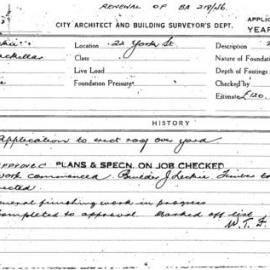 RENEWAL OF BA 218/46
CITY ARCHITECT AND BUILDING SURVEYOR'S DEPT.
APPLIC
YEAR
Location 22 York St.
Class
Nature of Foundation
Live Load
Depth of Footings
Foundation Pressure
Checked by
Estimate £120
HISTORY
Application to erect roof over yard
PLANS & SPECN. ON JOB CHECKED
Work commenced. Builder J Leckie
General finishing work in progress
Completed to approval. Marked off list
W.T.